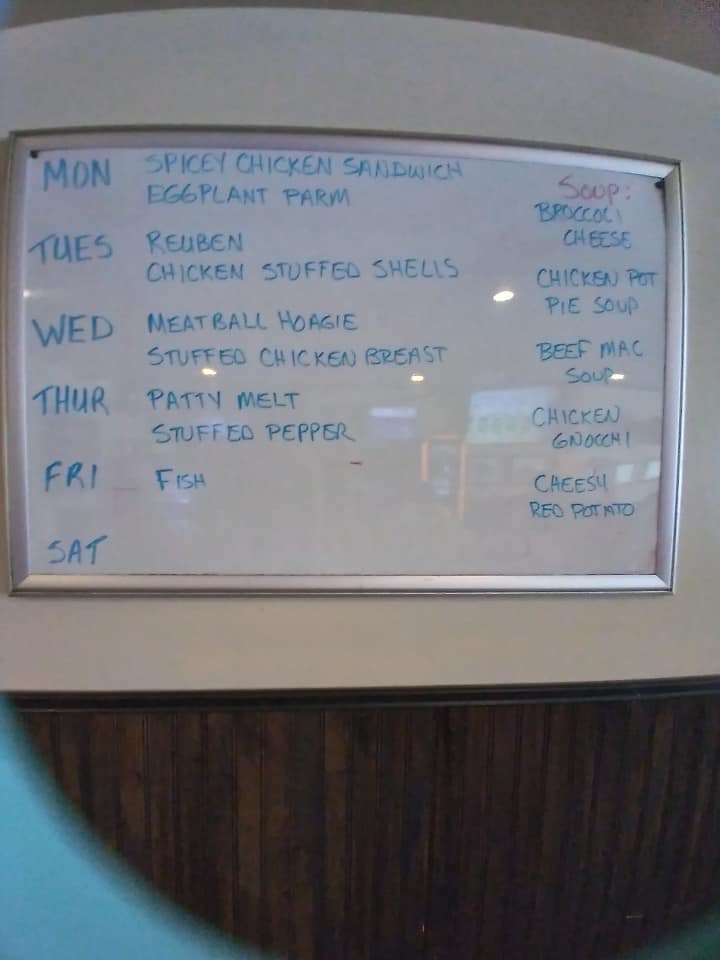 MON SPICEY CHICKEN SANDWICH
EGGPLANT PARM
TUES REUBEN
CHICKEN STUFFED SHELLS
WED MEATBALL HOAGIE
STUFFED CHICKEN BREAST
THUR PATTY MELT
STUFFED PEPPER
FRI FISH
SAT
SOUP:
BROCCOLI
CHEESE
CHICKEN POT
PIE SOUP
BEEF MAC
SOUP
CHICKEN
GNOCCHI
CHEESY
RED POTATO